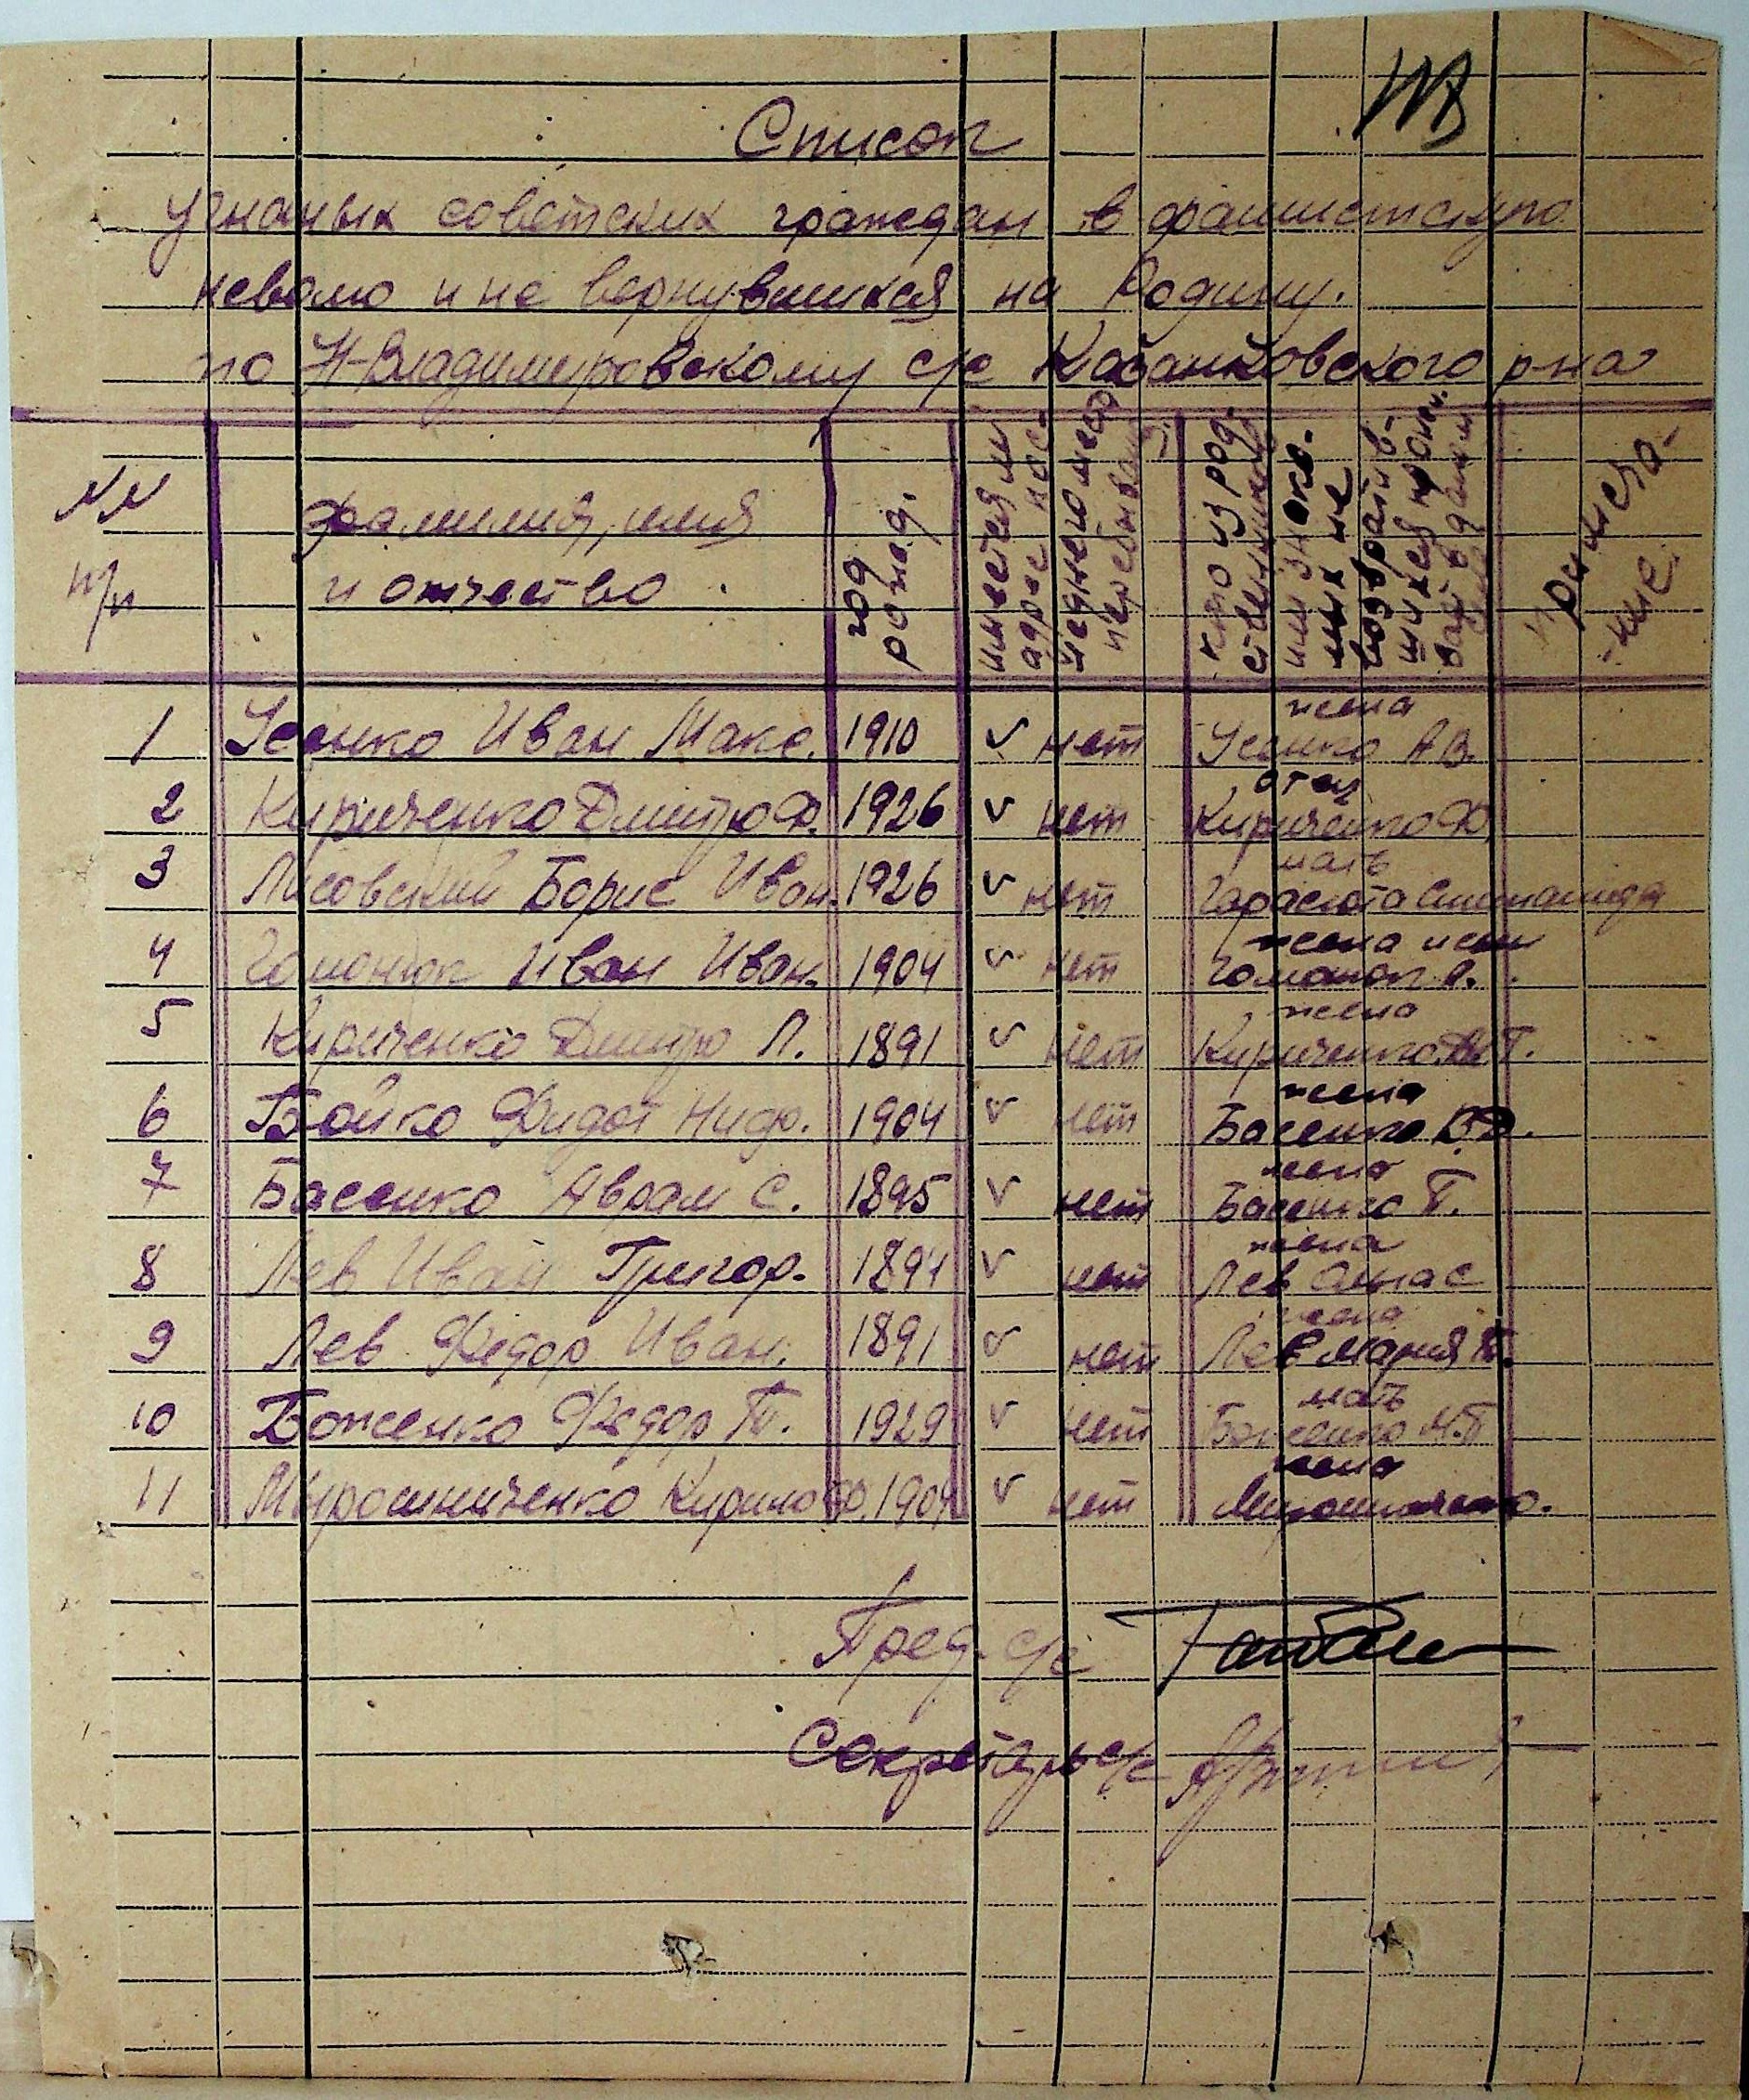 Список
угнаных советских граждан в фашистскую
неволю и не вернувшихся на Родину.
по Н-Владимировскому с/с Кабанковского р-на
NN п/п
фамилия, имя и отчество
год рожд.
имеется ли адрес последнего мест. пребывания
кто из родственников или знаком. них не возвратившихся прожив. в данном
примеча-ние.
1 Усенко Иван Макс. 1910 v нет жена Усенко А В.
2 Кириченко Дмитро Ф. 1926 v нет отец Кириченко Ф
3 Лисовский Борис Иван. 1926 v нет мать Гарасюта
4 Гомонюк Иван Иван. 1904 v нет жена Гомонюк
5 Кириченко Дмитро Л. 1891 v нет жена Кириченко Т.
6 Бойко Федот Ниф. 1904 v нет жена Басенко
7 Басенко Аврам С. 1895 v нет жена Басенко Т.
8 Лев Иван Григор. 1894 v нет жена Лев С
9 Лев Федор Иван. 1891 v нет жена Лев Мария Т.
10 Боженко Федор Т. 1929 v нет мать Боженко М.Т
11 Мирошниченко Кирило Ф. 1904 v нет жена Мирошниченко.
Пред. с/с
Секретарь с/с